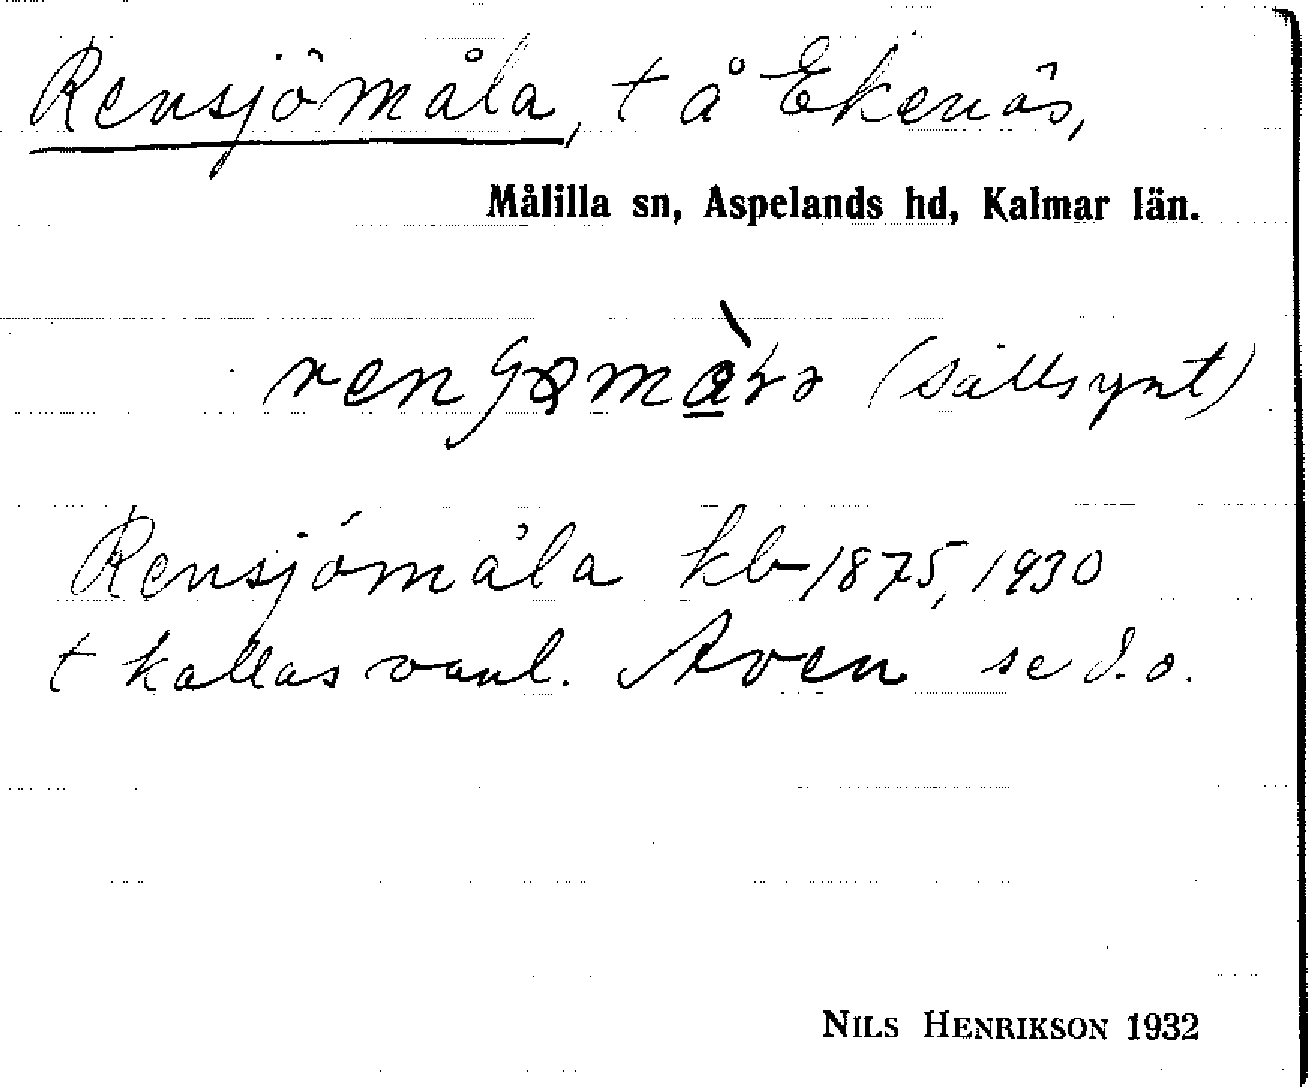 Rensjömåla, t å Ekenäs,
Målilla sn, Aspelands hd, Kalmar län.
(sällsynt)
Rensjömåla kb 1875, 1930
t kallas vanl. Aven se d.o.
NILS HENRIKSON 1932